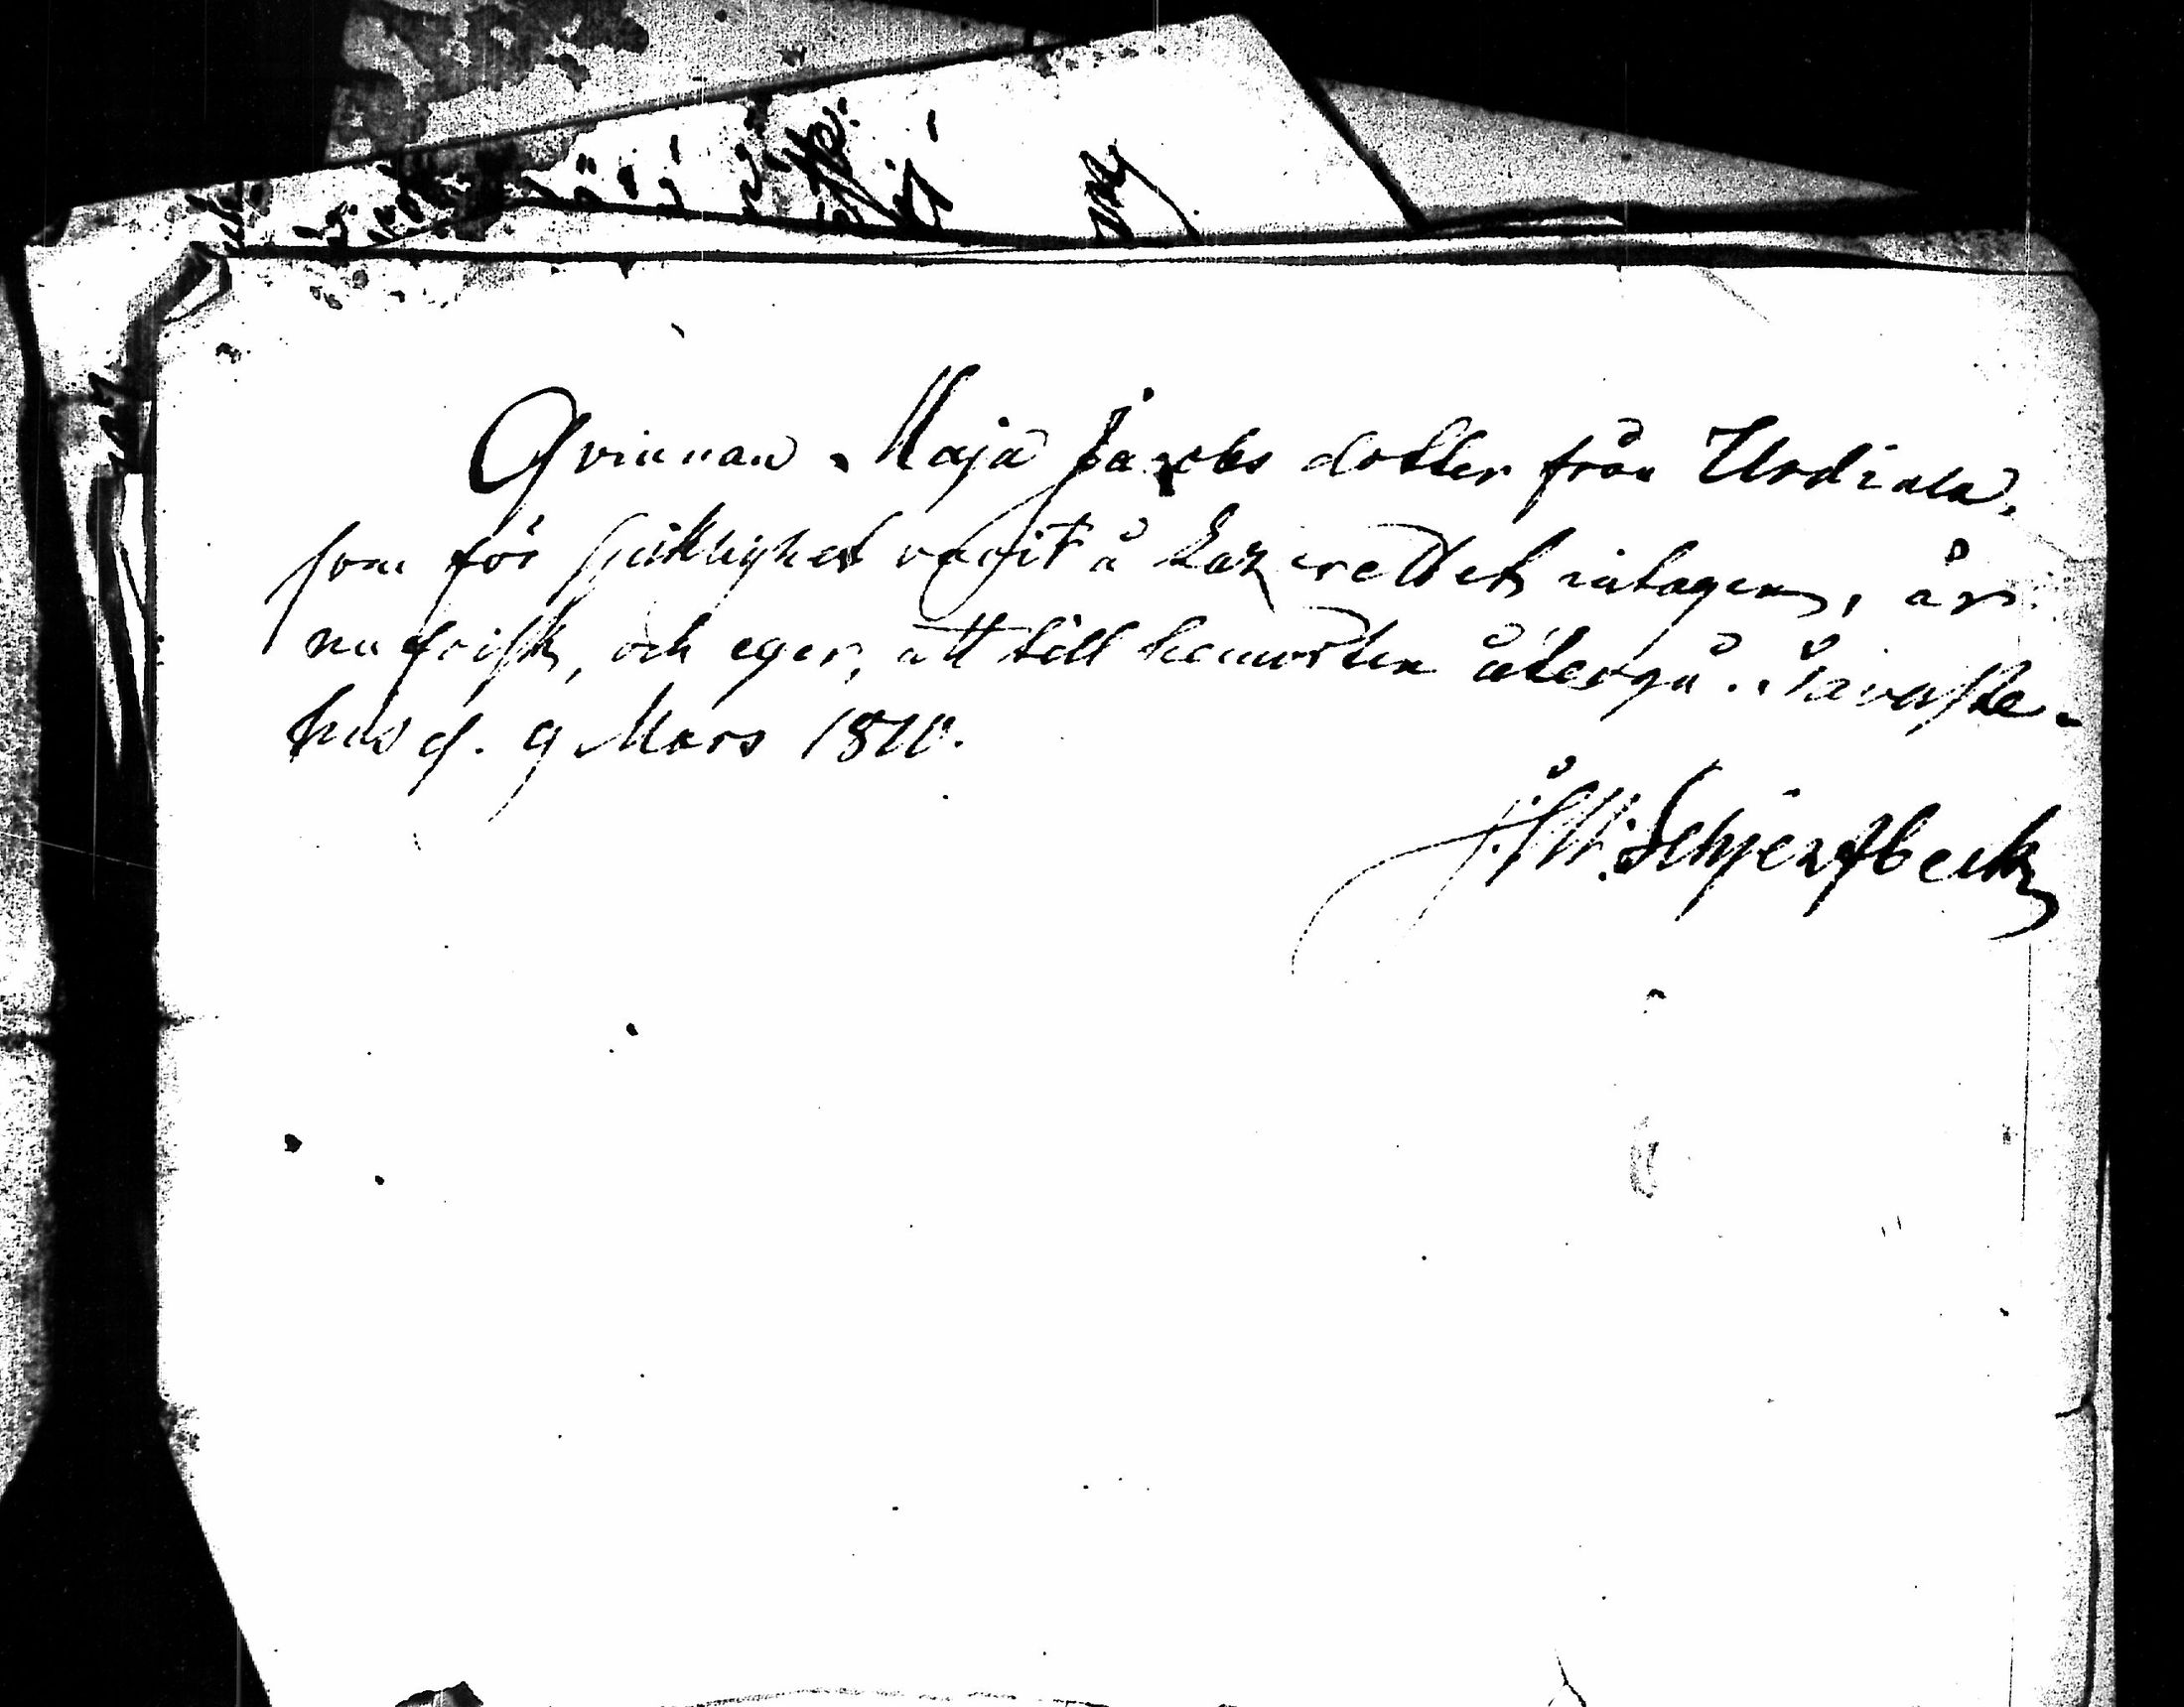 Qvinnan Maja Jacobs dotter från Urdiala,
som för sjuklighet varit å Lazarettet intagen, är
nu frisk, och eger, att till hemorten återgå. Tavaste-
hus d. 9 Mars 1810.
Schjerfbeck